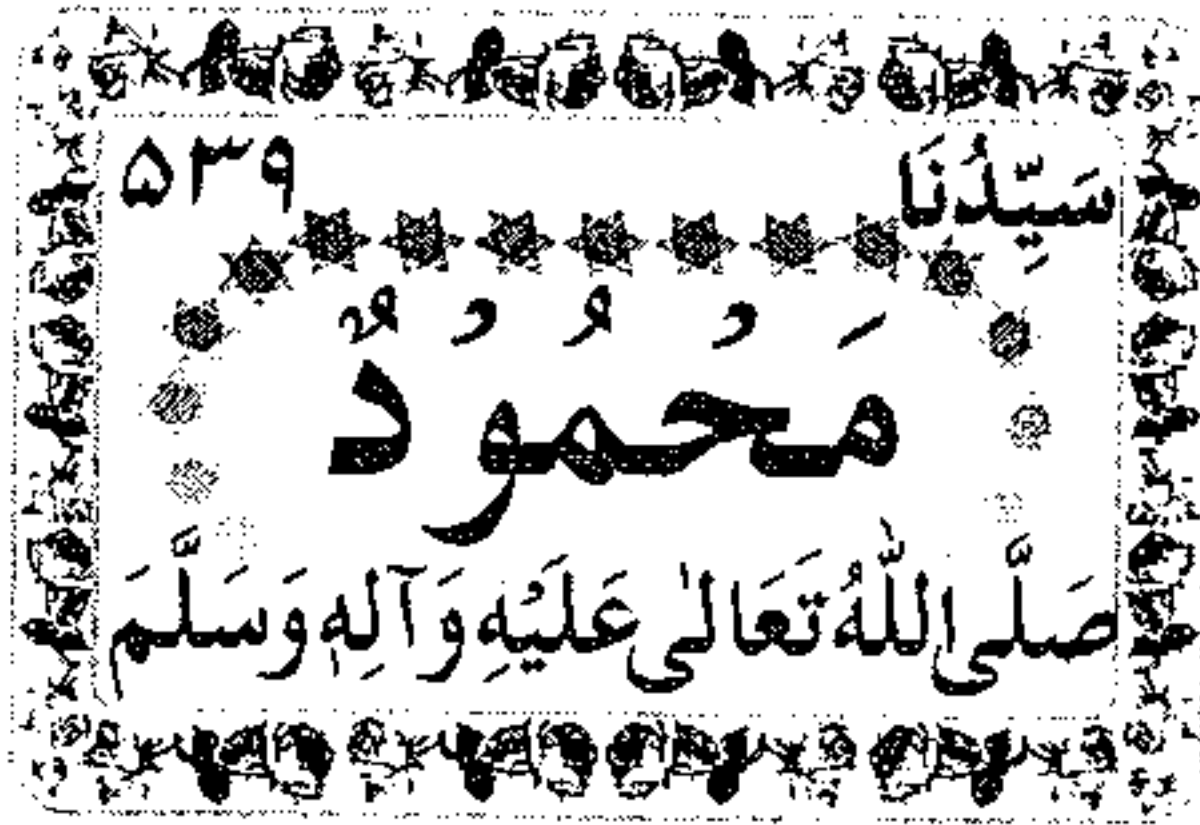 سَیِّدُنَا ۵۳۹
مَحْمُودٌ
صَلَّی اللّٰهُ تَعَالٰی عَلَیْهِ وَآلِهٖ وَسَلَّمَ